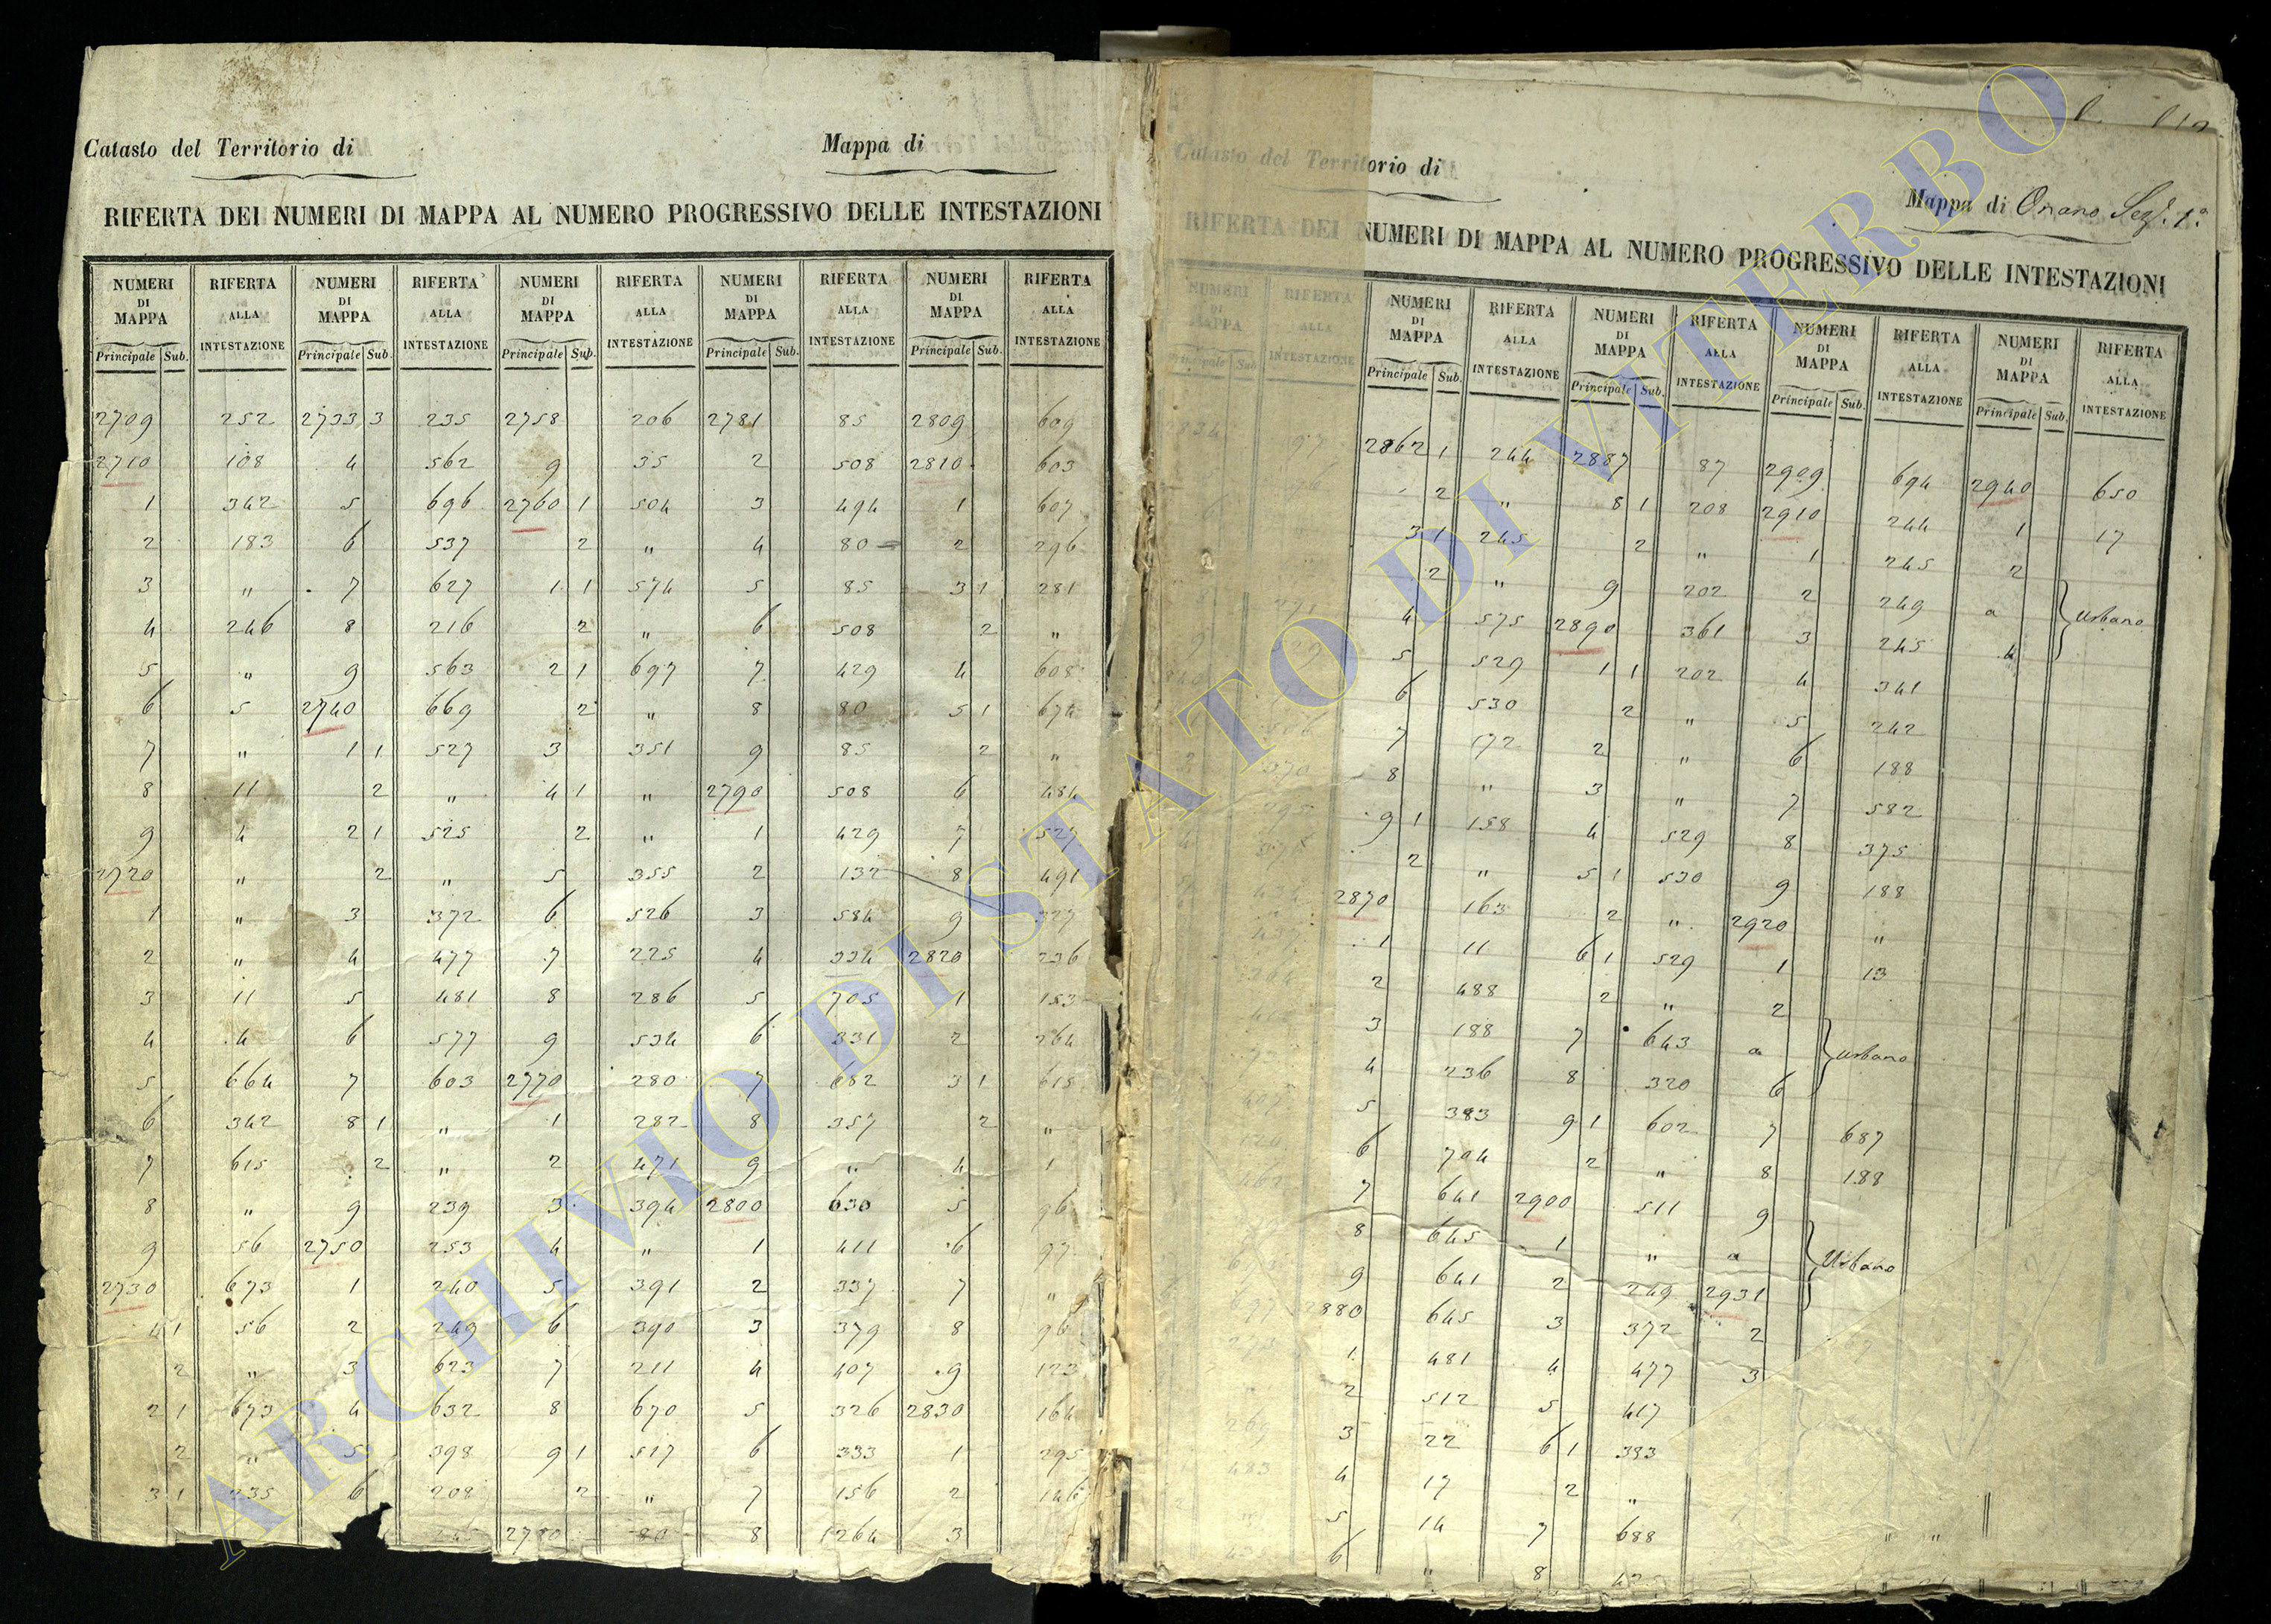 Catasto del Territorio di Mappa di
RIFERTA DEI NUMERI DI MAPPA AL NUMERO PROGRESSIVO DELLE INTESTAZIONI
NUMERI DI MAPPA RIFERTA ALLA INTESTAZIONE NUMERI DI MAPPA RIFERTA ALLA INTESTAZIONE NUMERI DI MAPPA RIFERTA ALLA INTESTAZIONE NUMERI DI MAPPA RIFERTA ALLA INTESTAZIONE NUMERI DI MAPPA RIFERTA ALLA INTESTAZIONE
Principale Sub. Principale Sub. Principale Sub. Principale Sub. Principale Sub.
2709 252 2733 3 235 2758 206 2781 85 2809 609
2710 108 4 562 9 35 2 508 2810 603
1 342 5 696 2760 1 504 3 494 1 607
2 183 6 537 2 " 4 80 2 296
3 " 7 627 1 1 574 5 85 3 1 281
4 246 8 216 2 " 6 508 2 "
5 " 9 563 2 1 697 7 429 4 608
6 5 2740 669 2 " 8 80 5 1 674
7 " 1 1 527 3 351 9 85 2 "
8 11 2 " 4 1 " 2790 508 6 484
9 4 2 1 525 2 " 1 429 7 527
2720 " 2 " 5 355 2 132 8 491
1 " 3 372 6 526 3 584 9 327
2 " 4 477 7 225 4 334 2820 236
3 11 5 481 8 286 5 705 1 153
4 4 6 577 9 534 6 331 2 264
5 664 7 603 2770 280 7 682 3 1 615
6 342 8 1 " 1 282 8 357 2 "
7 615 2 " 2 471 9 " 4 1
8 " 9 239 3 394 2800 630 5 96
9 56 2750 253 4 " 1 411 6 97
2730 673 1 240 5 391 2 337 7 "
1 1 56 2 249 6 390 3 379 8 96
2 " 3 623 7 211 4 407 9 123
2 1 673 4 632 8 670 5 326 2830 164
2 " 5 398 9 1 517 6 333 1 295
3 1 235 6 208 2 " 7 156 2 146
2780 80 8 264 3
Catasto del Territorio di
Mappa di Onano Sez. 1ª
RIFERTA DEI NUMERI DI MAPPA AL NUMERO PROGRESSIVO DELLE INTESTAZIONI
NUMERI DI MAPPA RIFERTA ALLA INTESTAZIONE NUMERI DI MAPPA RIFERTA ALLA INTESTAZIONE NUMERI DI MAPPA RIFERTA ALLA INTESTAZIONE NUMERI DI MAPPA RIFERTA ALLA INTESTAZIONE NUMERI DI MAPPA RIFERTA ALLA INTESTAZIONE
Principale Sub. Principale Sub. Principale Sub. Principale Sub. Principale Sub.
2834 97 2862 1 244 2887 87 2909 694 2940 650
2 " 8 1 208 2910 244 1 17
3 1 245 2 " 1 245 2
2 " 9 202 2 249 a Urbano
4 575 2890 361 3 245
5 529 1 1 202 4 341
6 530 2 " 5 242
7 172 2 " 6 188
8 " 3 " 7 582
9 1 158 4 529 8 375
2 " 5 1 530 9 188
2870 163 2 " 2920 "
1 11 6 1 529 1 13
2 488 2 " 2
3 188 7 643 a Urbano
4 236 8 320 6
5 383 9 1 602 7 687
6 704 2 " 8 188
7 641 2900 511 9
8 645 1 " a Urbano
9 641 2 249 2931
2880 645 3 372 2
1 481 4 477 3
2 512 5 417
3 22 6 1 383
4 17 2 "
5 14 7 688
6 " 8
ARCHIVIO DI STATO DI VITERBO